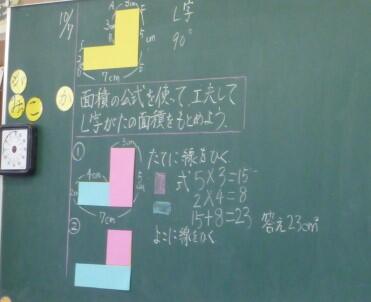 10/7
L字
90°
3cm
3cm
5cm
7cm
め
面積の公式を使って、工夫して
L字がたの面積をもとめよう。
①
たてに線をひく
3cm
4cm
5cm
2cm
7cm
式 5×3=15
2×4=8
15+8=23 答え23cm²
②
よこに線をひく